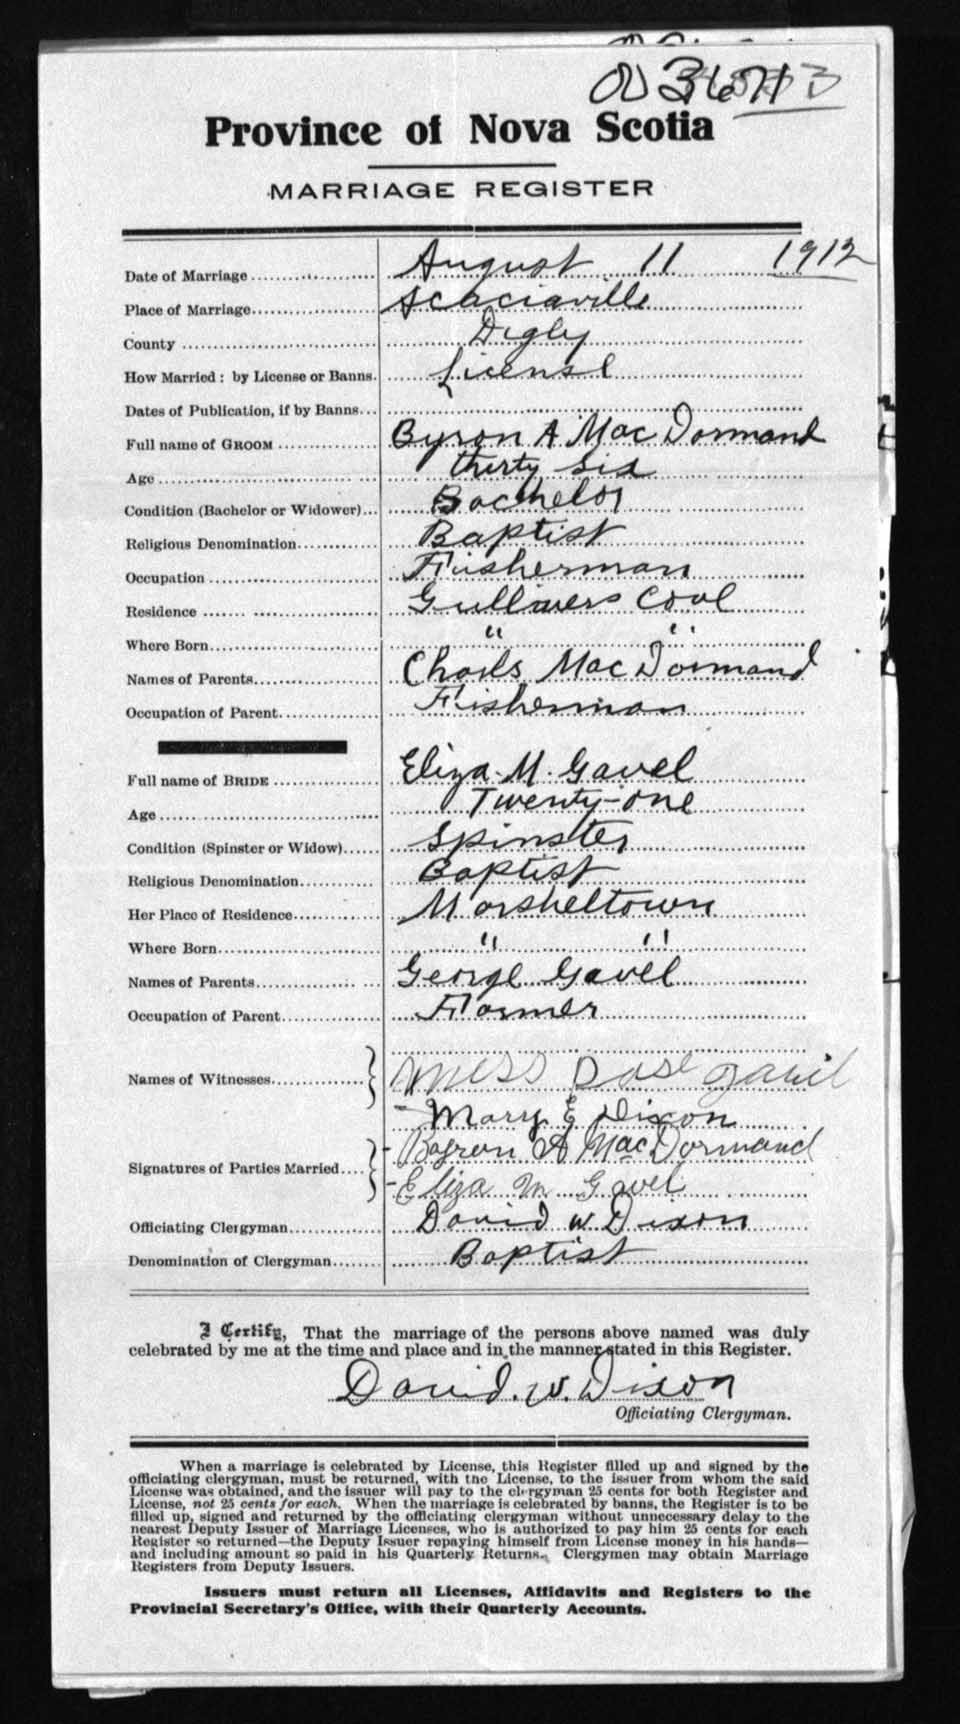 3671
Province of Nova Scotia
MARRIAGE REGISTER
Date of Marriage August 11 1912
Place of Marriage Acaciaville
County Digby
How Married: by License or Banns. License
Dates of Publication, if by Banns
Full name of GROOM Byron A MacDormand
Age thirty six
Condition (Bachelor or Widower) Bachelor
Religious Denomination Baptist
Occupation Fisherman
Residence Gullivers Cove
Where Born " "
Names of Parents Charls MacDormand
Occupation of Parent Fisherman
Full name of BRIDE Eliza M. Gavel
Age Twenty-one
Condition (Spinster or Widow) Spinster
Religious Denomination Baptist
Her Place of Residence Marsheltown
Where Born " "
Names of Parents George Gavel
Occupation of Parent Farmer
Names of Witnesses Miss
Mary E Dixon
Signatures of Parties Married Byron A MacDormand
Eliza M Gavel
Officiating Clergyman David W Dixon
Denomination of Clergyman Baptist
I Certify, That the marriage of the persons above named was duly
celebrated by me at the time and place and in the manner stated in this Register.
David. W. Dixon
Officiating Clergyman.
When a marriage is celebrated by License, this Register filled up and signed by the
officiating clergyman, must be returned, with the License, to the issuer from whom the said
License was obtained, and the issuer will pay to the clergyman 25 cents for both Register and
License, not 25 cents for each. When the marriage is celebrated by banns, the Register is to be
filled up, signed and returned by the officiating clergyman without unnecessary delay to the
nearest Deputy Issuer of Marriage Licenses, who is authorized to pay him 25 cents for each
Register so returned—the Deputy Issuer repaying himself from License money in his hands—
and including amount so paid in his Quarterly Returns. Clergymen may obtain Marriage
Registers from Deputy Issuers.
Issuers must return all Licenses, Affidavits and Registers to the
Provincial Secretary's Office, with their Quarterly Accounts.